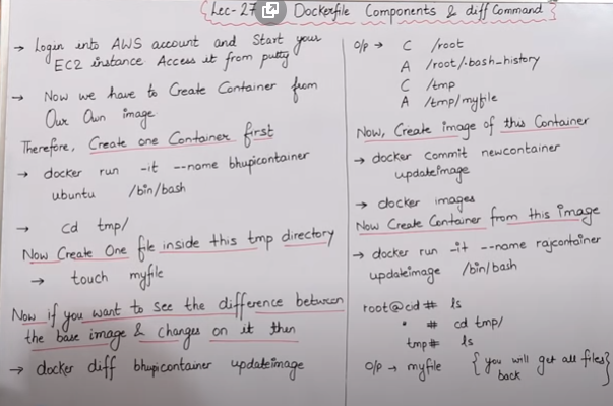 {Lec-27 Dockerfile Components & diff Command}
→ Login into AWS account and Start your
EC2 instance Access it from putty
→ Now we have to Create Container from
Our Own image
Therefore, Create one Container first
→ docker run -it --name bhupicontainer
ubuntu /bin/bash
→ cd tmp/
Now Create One file inside this tmp directory
→ touch myfile
Now if you want to see the difference between
the base image & changes on it then
→ docker diff bhupicontainer updateimage
o/p → C /root
A /root/.bash_history
C /tmp
A /tmp/myfile
Now, Create image of this Container
→ docker commit newcontainer
updateimage
→ docker images
Now Create Container from this image
→ docker run -it --name rajcontainer
updateimage /bin/bash
root@cid # ls
" # cd tmp/
tmp# ls
o/p → myfile {you will get all files}
back